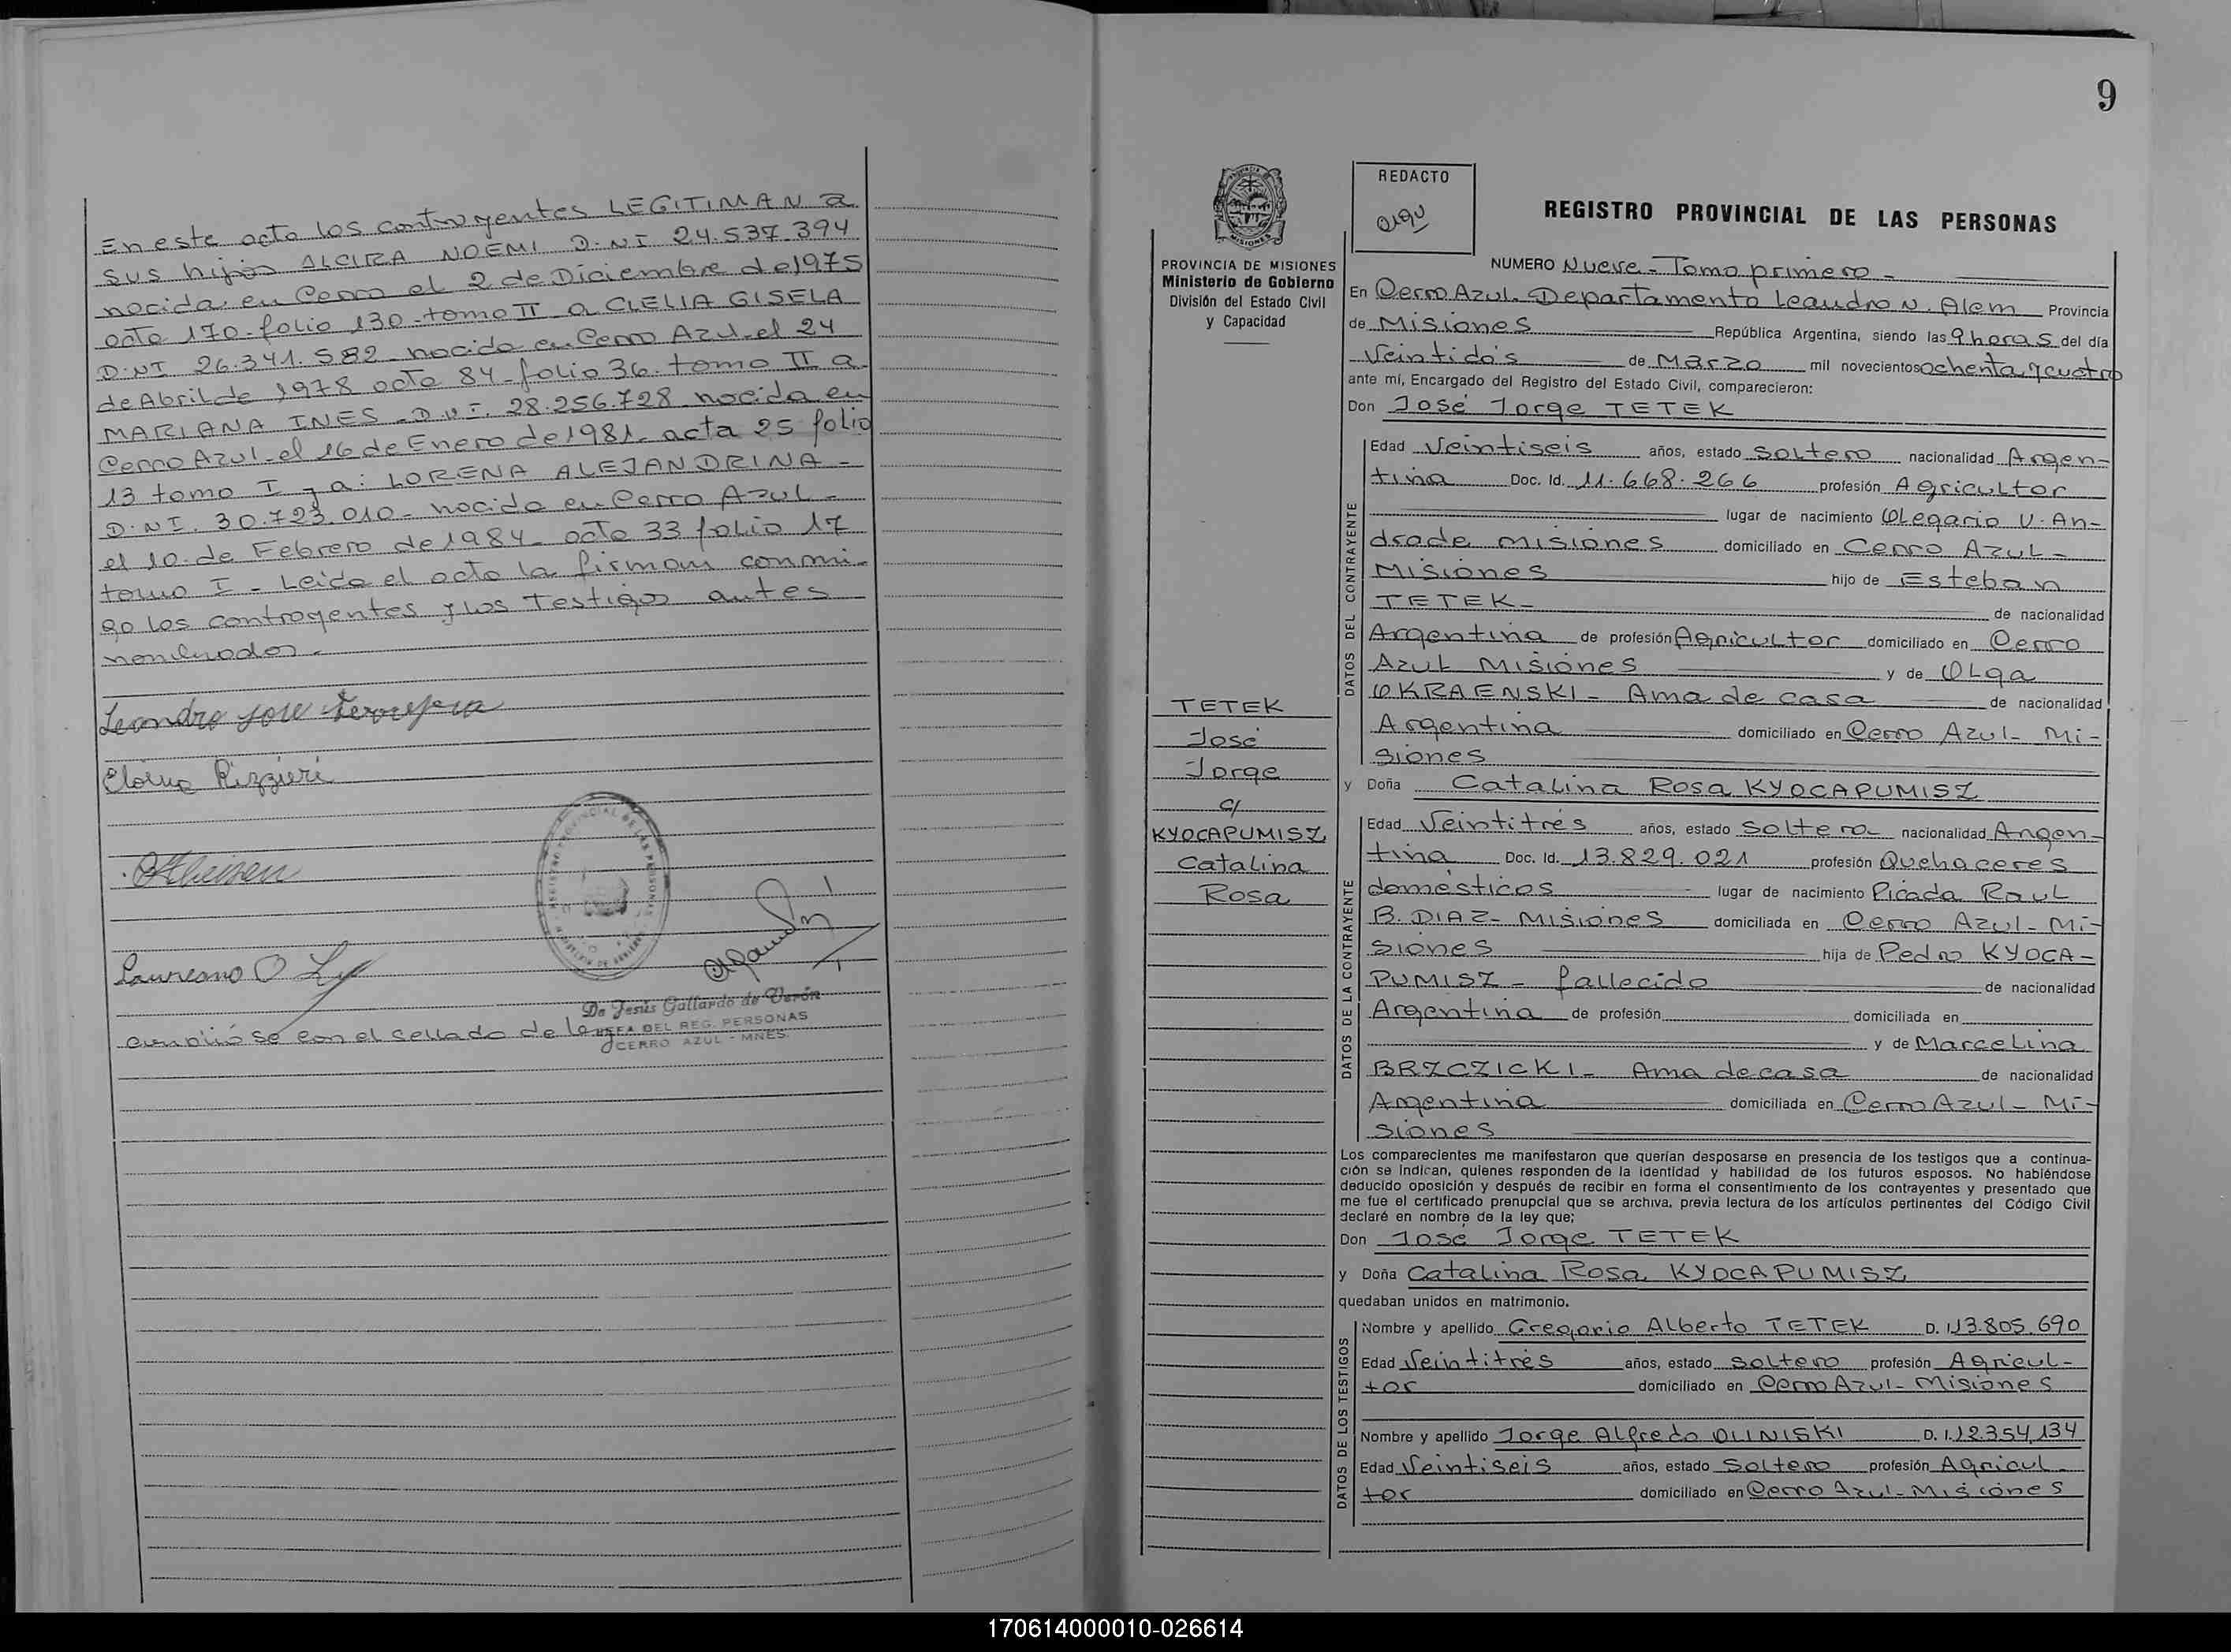 En este acto los contrayentes LEGITIMAN a
sus hijos ALCIRA NOEMI D.NI 24.537.394
nacida en Cerro el 2 de Diciembre de 1975
acta 170-folio 130-tomo II a CLELIA GISELA
D.NI 26.341.582 nacida en Cerro Azul el 24
de Abril de 1978 acta 84-folio 36. tomo II a
MARIANA INES - D.N.I. 28.256.728 nacida en
Cerro Azul el 16 de Enero de 1981 acta 25 folio
13 tomo I y a: LORENA ALEJANDRINA -
D.NI. 30.723.010 - nacida en Cerro Azul -
el 10 de Febrero de 1984 - acta 33 folio 17
tomo I - Leida el acta la firman conmi-
go los contrayentes y los Testigos antes
nombrados -
Leandro Jose
Eloina Rizzieri
Laureano O
De Jesús Gallardo de Verón
JEFA DEL REG. PERSONAS
CERRO AZUL - MNES.
cumplió se con el sellado de ley
9
PROVINCIA DE MISIONES
Ministerio de Gobierno
División del Estado Civil
y Capacidad
TETEK
José
Jorge
c/
KYOCAPUMISZ
Catalina
Rosa
REDACTO
REGISTRO PROVINCIAL DE LAS PERSONAS
NUMERO Nueve - Tomo primero -
En Cerro Azul - Departamento Leandro N. Alem Provincia
de Misiones República Argentina, siendo las 9 horas del día
Veintidós de Marzo mil novecientos ochenta y cuatro
ante mí, Encargado del Registro del Estado Civil, comparecieron:
Don José Jorge TETEK
DATOS DEL CONTRAYENTE
Edad Veintiseis años, estado Soltero nacionalidad Argen-
tina Doc. Id. 11.668.266 profesión Agricultor
lugar de nacimiento Olegario V. An-
drade Misiones domiciliado en Cerro Azul -
Misiones hijo de Esteban
TETEK - de nacionalidad
Argentina de profesión Agricultor domiciliado en Cerro
Azul Misiones y de Olga
OKRAENSKI - Ama de casa de nacionalidad
Argentina domiciliado en Cerro Azul - Mi-
siones
y Doña Catalina Rosa KYOCAPUMISZ
DATOS DE LA CONTRAYENTE
Edad Veintitrés años, estado Soltera nacionalidad Argen-
tina Doc. Id. 13.829.021 profesión Quehaceres
domésticos lugar de nacimiento Picada Raul
B. DIAZ - Misiones domiciliada en Cerro Azul - Mi-
siones hija de Pedro KYOCA-
PUMISZ - fallecido de nacionalidad
Argentina de profesión domiciliada en
y de Marcelina
BRZCZICKI - Ama de casa de nacionalidad
Argentina domiciliada en Cerro Azul - Mi-
siones
Los comparecientes me manifestaron que querían desposarse en presencia de los testigos que a continua-
ción se indican, quienes responden de la identidad y habilidad de los futuros esposos. No habiéndose
deducido oposición y después de recibir en forma el consentimiento de los contrayentes y presentado que
me fue el certificado prenupcial que se archiva, previa lectura de los artículos pertinentes del Código Civil
declaré en nombre de la ley que;
Don José Jorge TETEK
y Doña Catalina Rosa KYOCAPUMISZ
quedaban unidos en matrimonio.
DATOS DE LOS TESTIGOS
Nombre y apellido Gregorio Alberto TETEK D. I. 13.805.690
Edad Veintitrés años, estado soltero profesión Agricul-
tor domiciliado en Cerro Azul - Misiones
Nombre y apellido Jorge Alfredo OLINISKI D. I. 12.354.134
Edad Veintiseis años, estado Soltero profesión Agricul
tor domiciliado en Cerro Azul - Misiones
170614000010-026614